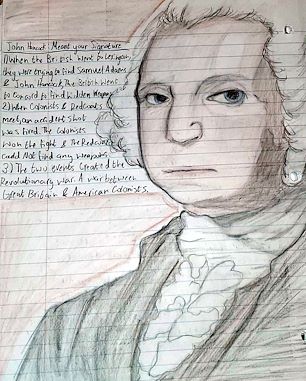 John Hancock: Means your signature
1) When the British went to Lexington
they were trying to find Samuel Adams
& John Hancock, The British went
to Concord to find hidden weapons
2) When Colonists & Redcoats
meet, an accident shot
was fired. The Colonists
won the fight & The Redcoats
could Not find any weapons.
3) The two events Created the
Revolutionary War. A war between
Great Britain & American Colonists.